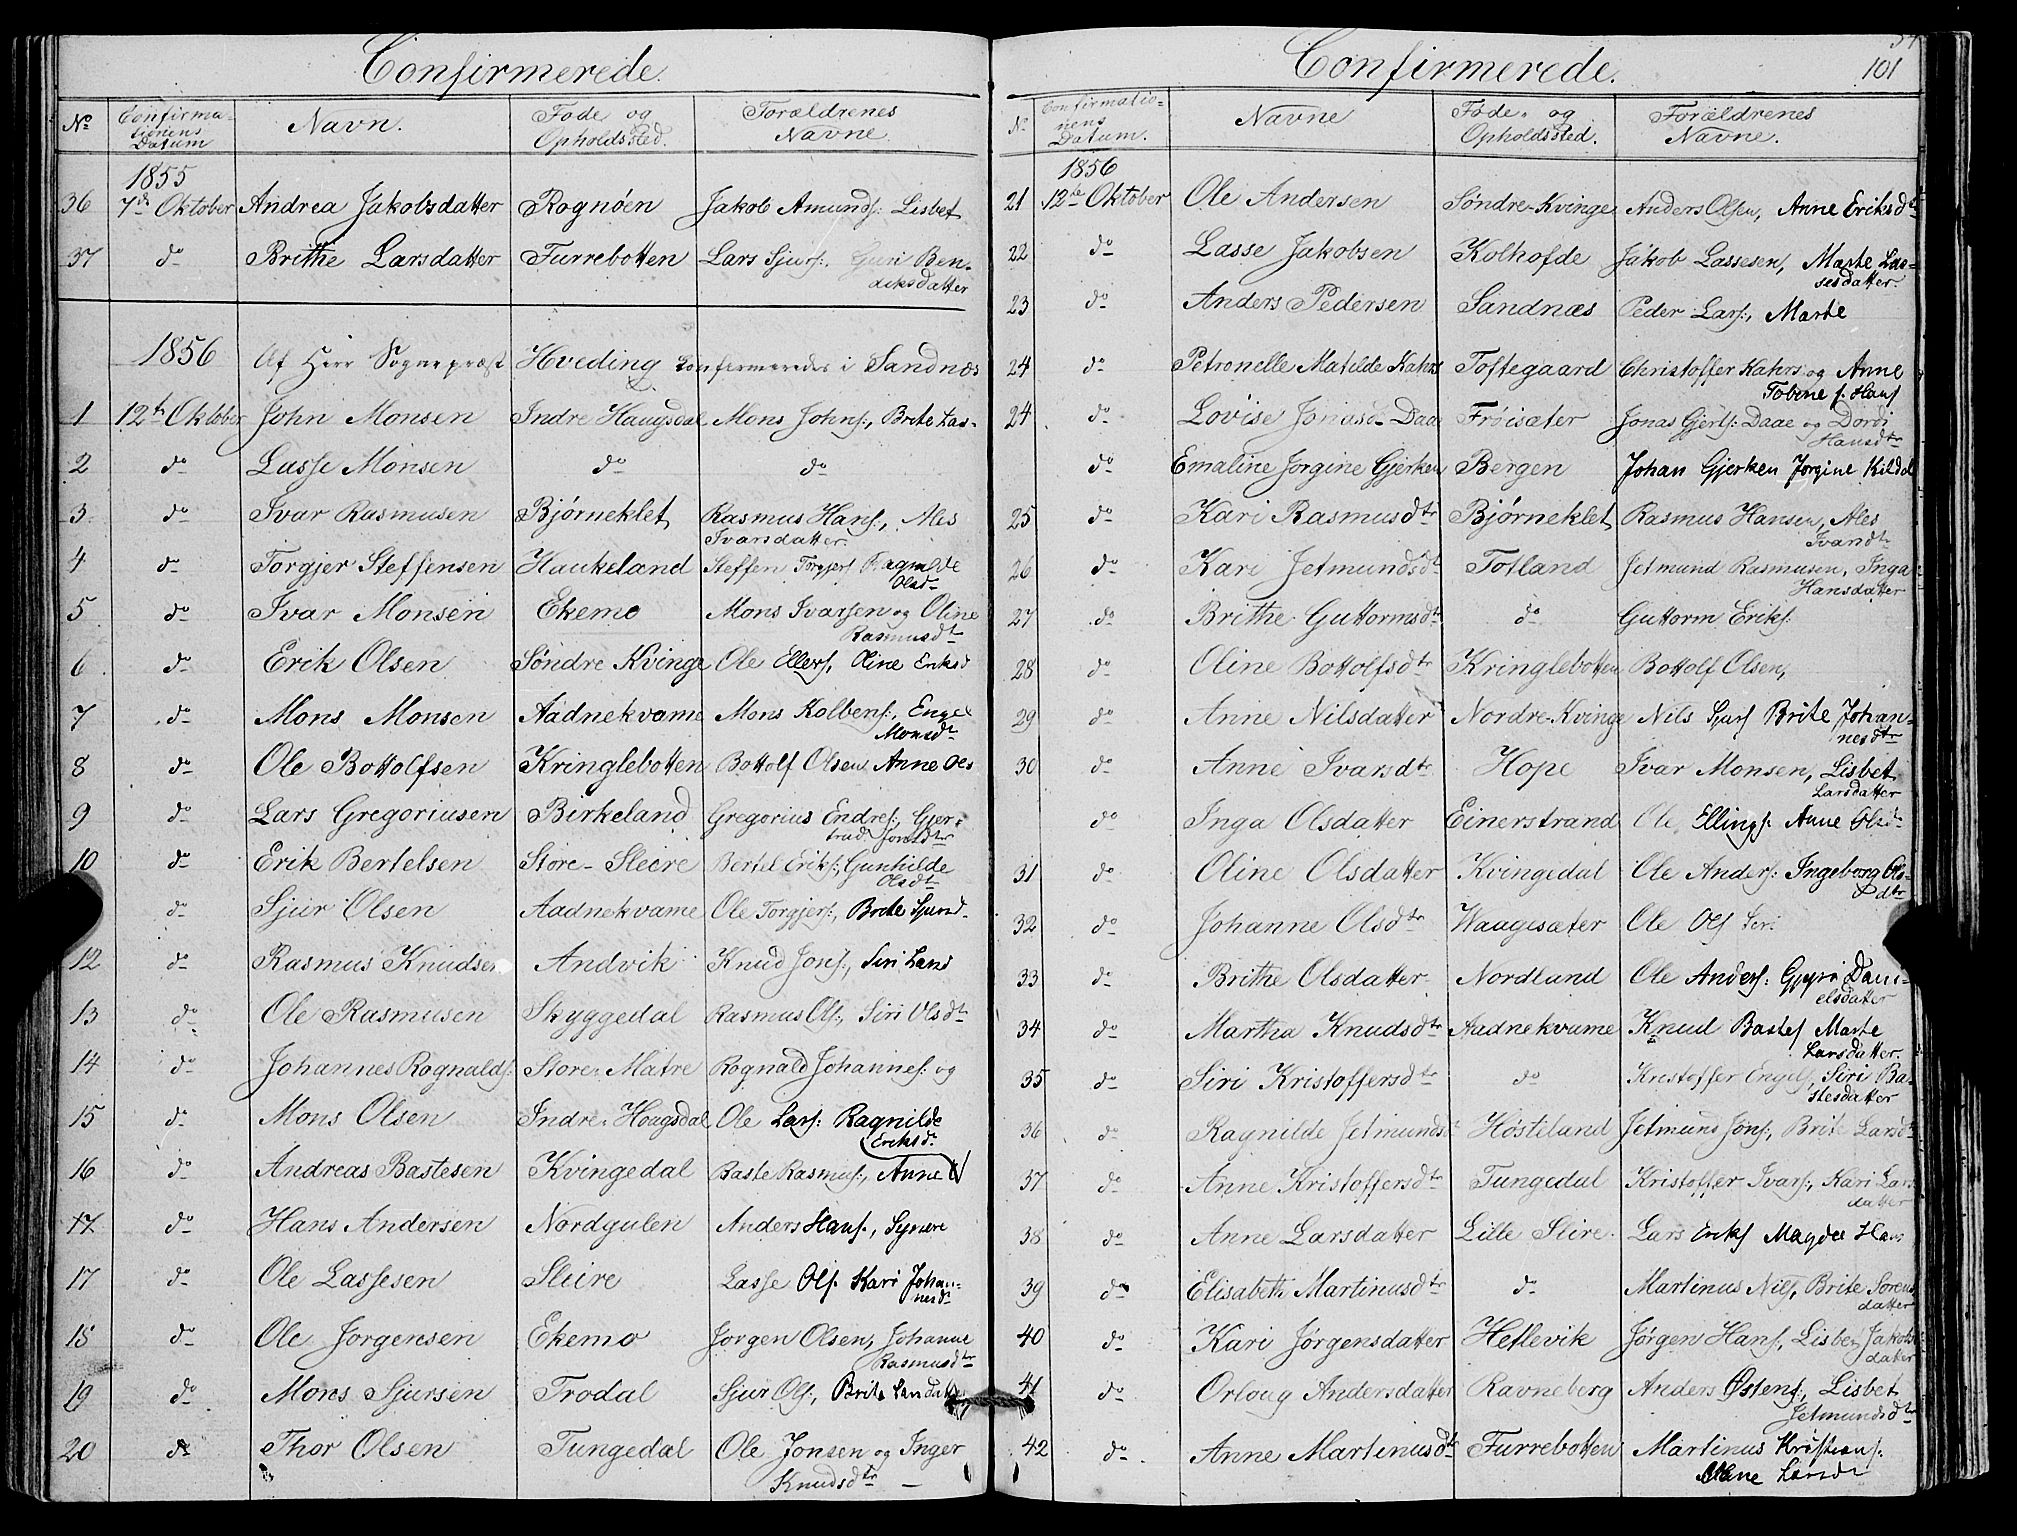 Confirmerede.
No Confirmationens Datum Navn. Føde og Opholdssted. Forældrenes Navne.
1855
36 7de Oktober Andrea Jakobsdatter Rognöen Jakob Amunds: Lisbet
37 do Brithe Larsdatter Furrebotten Lars Sjurs:, Guri Ben-
diksdatter
1856 Af Herr Sognepræst Hveding confermeredes i Sandnæs
1 12te Oktober John Monsen Indre Haugsdal Mons Johns:, Brite Las-
2 do Lasse Monsen do do
3 do Ivar Rasmusen Bjørneklet Rasmus Hans:, Ales
Ivarsdatter.
4 do Torgjer Steffensen Haukeland Steffen Torgjers Ragnilde
Olsd-
5 do Ivar Monsen Ekemo Mons Ivarsen og Oline
Rasmusdtr
6 do Erik Olsen Søndre Kvinge Ole Ellers, Oline Eriksd
7 do Mons Monsen Aadnekvame Mons Kolbens:, Engel
Monsdtr
8 do Ole Bottolfsen Kringlebotten Bottolf Olsen Anne Ols
9 do Lars Gregoriusen Birkeland Gregorius Endres:, Gjer-
trud
10 do Erik Bertelsen Store-Sleire Bertel Eriks:, Gunhilde
Olsdtr
do Sjur Olsen Aadnekvame Ole Torgjers:, Brite Sjursd-
12 do Rasmus Knudsen Andvik Knud Jons:, Siri Larsd
13 do Ole Rasmusen Skyggedal Rasmus Ols:, Siri Olsdtr
14 do Johannes Rognalds: Store-Matre Rognald Johannes: og
15 do Mons Olsen Indre-Hougsdal Ole Lars: Ragnilde
Eriksd-
16 do Andreas Bastesen Kvingedal Baste Rasmus:, Anne
17 do Hans Andersen Nordgulen Anders Hans:, Synøre
17 do Ole Lassesen Sleire Lasse Ols. Kari Johan-
nesd-
18 do Ole Jorgensen Ekemo Jorgen Olsen, Johanne
Rasmusdtr
19 do Mons Sjursen Trodal Sjur Ols:, Brite Larsdatt
20 do Thor Olsen Tungedal Ole Jonsen og Inger
Knudsdtr —
Confirmerede. 101
No Confirmationens Datum. Navne Føde- og Opholdssted. Forældrenes Navne.
1856
21 12te Oktober Ole Andersen Søndre-Kvinge Anders Olsen, Anne Eriksdtr
22 do Lasse Jakobsen Kolhofde Jakob Lassesen, Marte Las-
sesdatter
23 do Anders Pedersen Sandnæs Peder Lars:, Marte
24 do Petronelle Matilde Kahrs Toftegaard Christoffer Kahrs og Anne
Tobine f. Hans
24 do Lovise Jonasd- Daae Fröisæter Jonas Gjerts: Daae og Dordi
Hansdtr
do Emaline Jorgine Gjerken Bergen Johan Gjerken Jorgine Kildal
25 do Kari Rasmusdtr Bjørneklet Rasmus Hansen, Ales
Ivarsdtr
26 do Kari Jetmundsdtr Totland Jetmund Rasmusen, Inga
Hansdatter
27 do Brithe Guttormsdtr do Guttorm Eriks:
28 do Oline Bottolfsdtr Kringlebotten Bottolf Olsen,
29 do Anne Nilsdatter Nordre-Kvinge Nils Sjurs Brite Johan-
nesdtr
30 do Anne Ivarsdtr Hope Ivar Monsen, Lisbet
Larsdatter
do Inga Olsdatter Einerstrand Ole Ellings: Anne Olsd-
31 do Oline Olsdatter Kvingedal Ole Anders: Ingeborg Ols-
dtr
32 do Johanne Olsdtr Waagesæter Ole Ols Siri
33 do Brithe Olsdatter Nordland Ole Anders: Gjyri Dani-
elsdatter
34 do Martha Knudsdtr Aadnekvame Knud Bastes Marte
Larsdatter.
35 do Siri Kristoffersdtr do Kristoffer Engels, Siri Ba-
stesdatter
36 do Ragnilde Jetmundsdtr Hösteland Jetmund Jons:, Brite Larsdtr
37 do Anne Kristoffersdtr Tungedal Kristoffer Ivars:, Kari Lars
datter
38 do Anne Larsdatter Lille Slire Lars Eriks Magdel Hans
39 do Elisabeth Martinusdtr do Martinus Nils, Brite Sorens
datter
40 do Kari Jørgensdatter Hetlevik Jørgen Hans:, Lisbet Jakobs
datter
41 do Orloug Andersdatter Ravneberg Anders Østens:, Lisbet
Jetmundsdtr
42 do Anne Martinusdtr Furrebotten Martinus Kristians:
Anne Larsdr